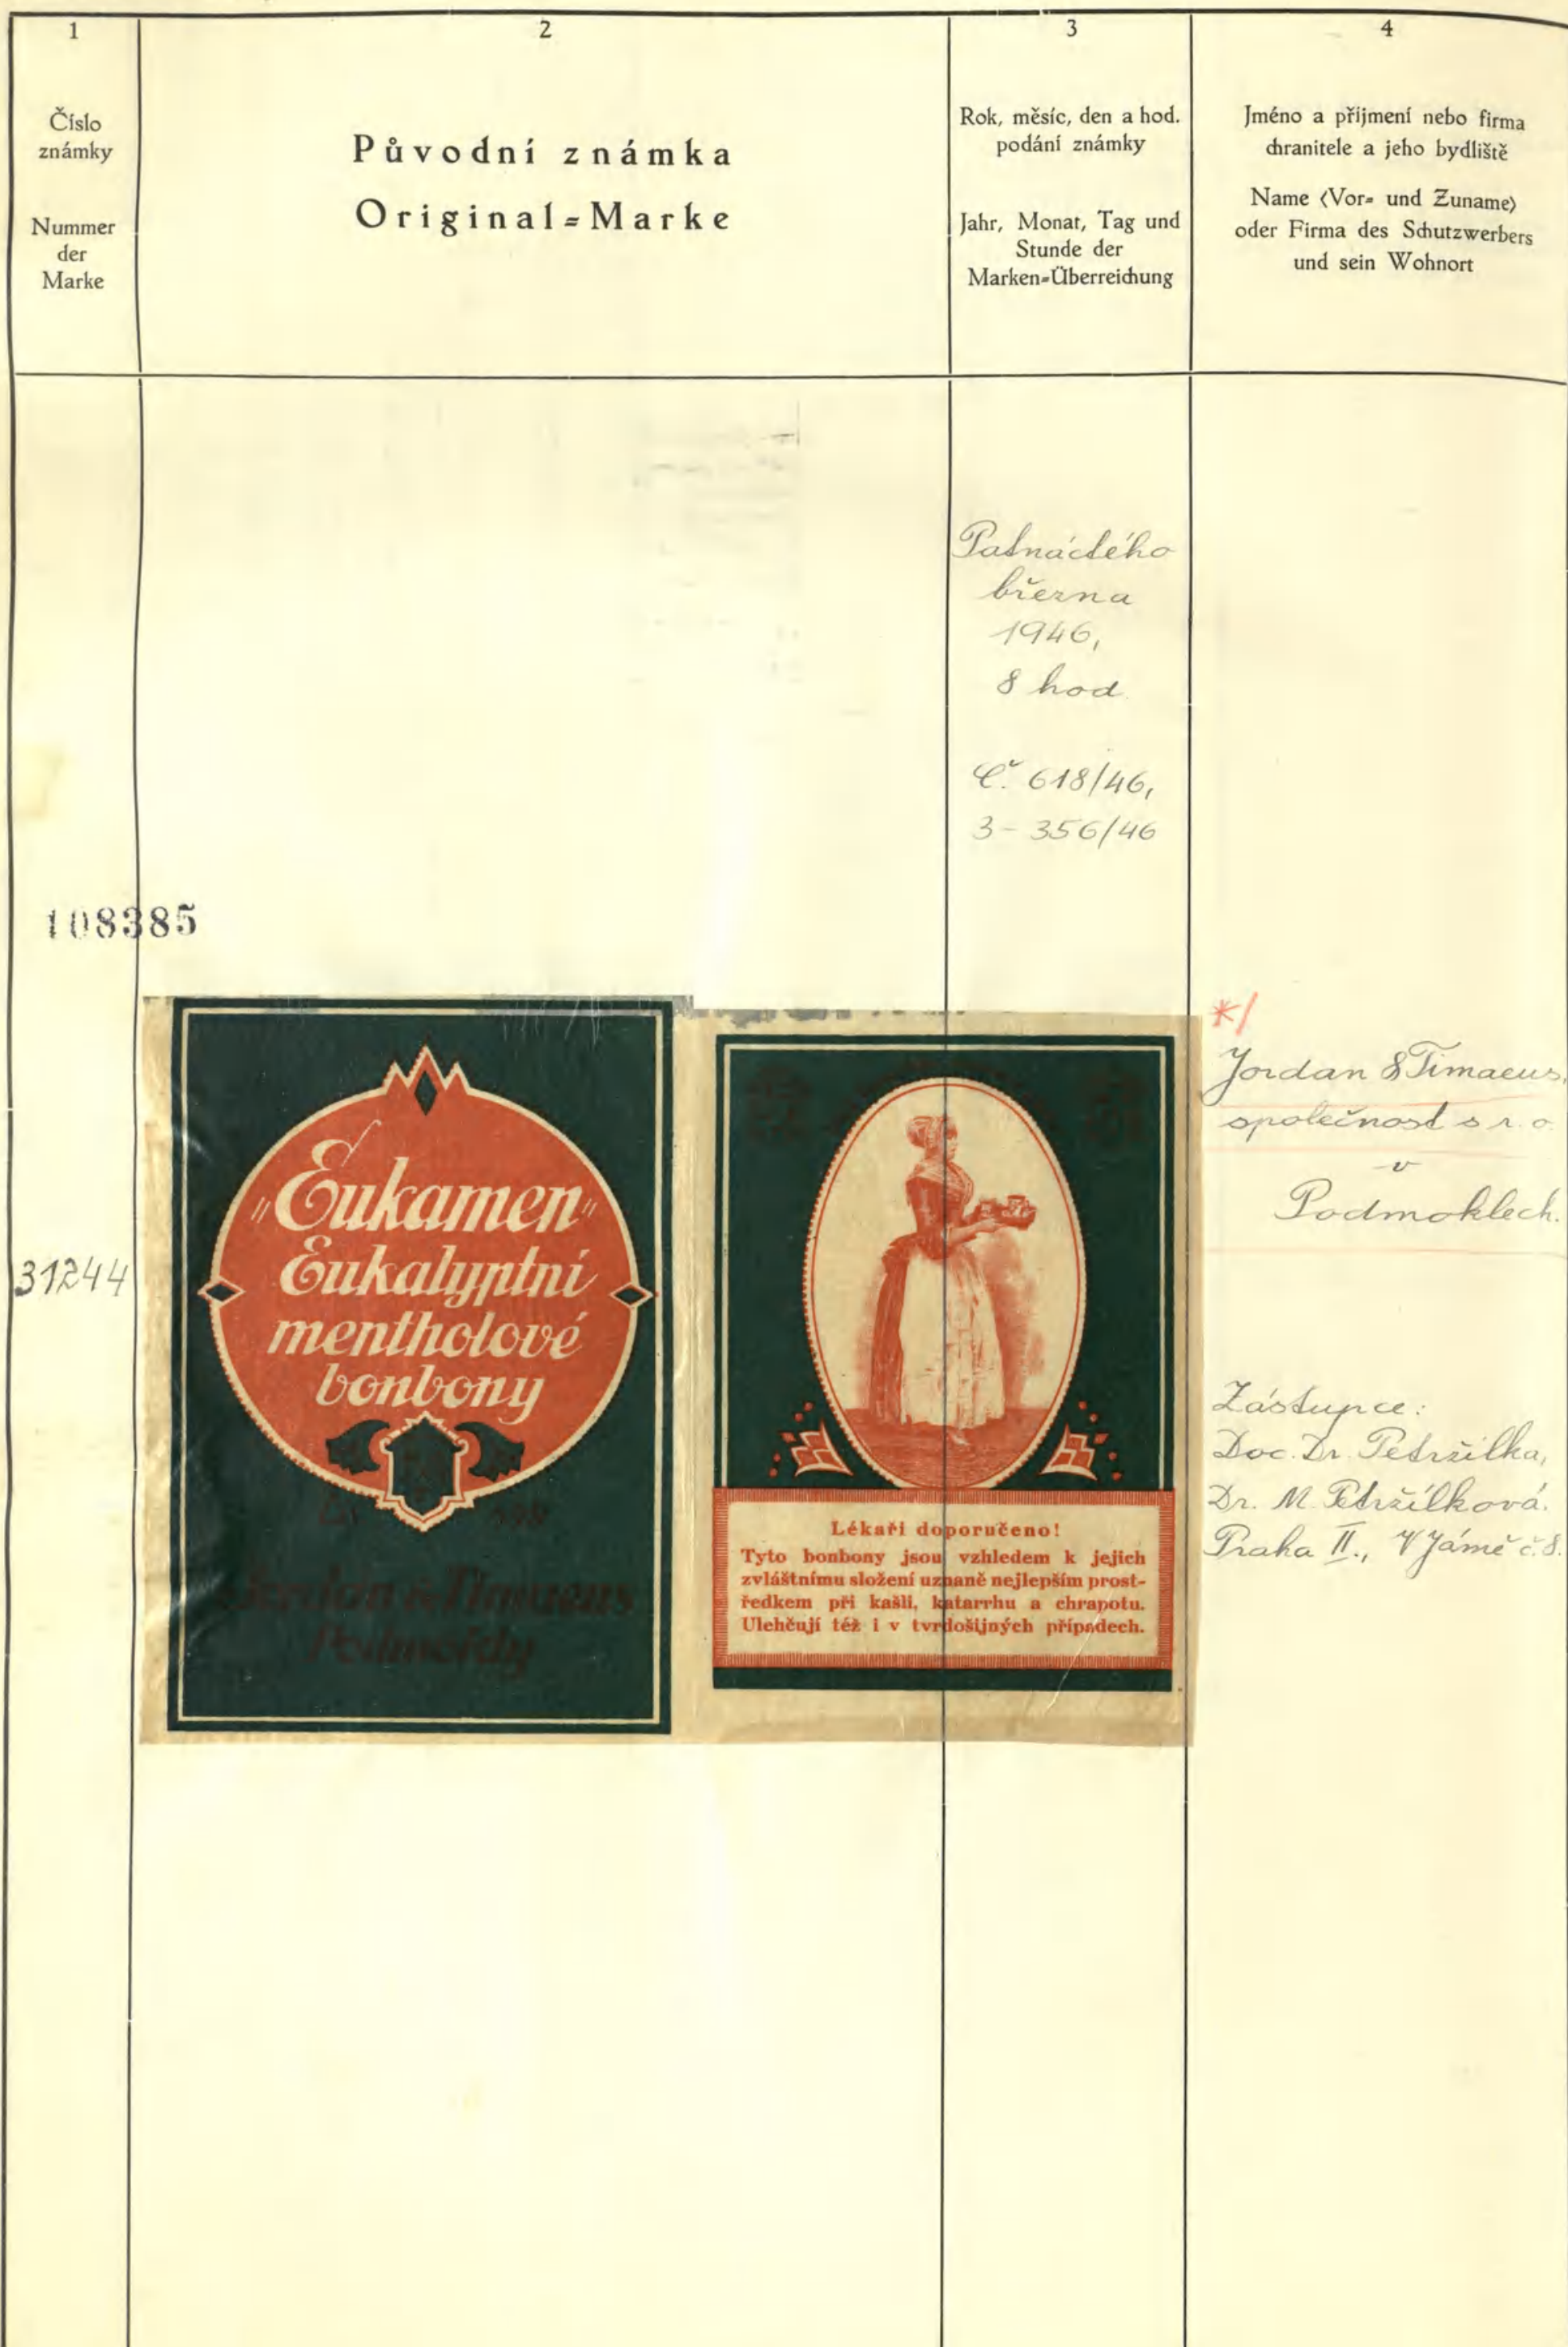 1
Číslo
známky
Nummer
der
Marke
2
Původní známka
Original-Marke
3
Rok, měsíc, den a hod.
podání známky
Jahr, Monat, Tag und
Stunde der
Marken-Überreichung
4
Jméno a příjmení nebo firma
chranitele a jeho bydliště
Name (Vor- und Zuname)
oder Firma des Schutzwerbers
und sein Wohnort
Patnáctého
března
1946,
8 hod.
Č. 618/46,
3- 356/46
108385
31244
"Eukamen"
Eukalyptní
mentholové
bonbony
Jordan & Timaeus
Lékaři doporučeno!
Tyto bonbony jsou vzhledem k jejich
zvláštnímu složení uznaně nejlepším prost-
ředkem při kašli, katarrhu a chrapotu.
Ulehčují též i v tvrdošijných případech.
*/
Jordan & Timaeus,
společnost s r. o.
v
Podmoklech.
Zástupce:
Doc. Dr. Petržilka,
Dr. M. Petržílková.
Praha II., V Jámě č. 8.